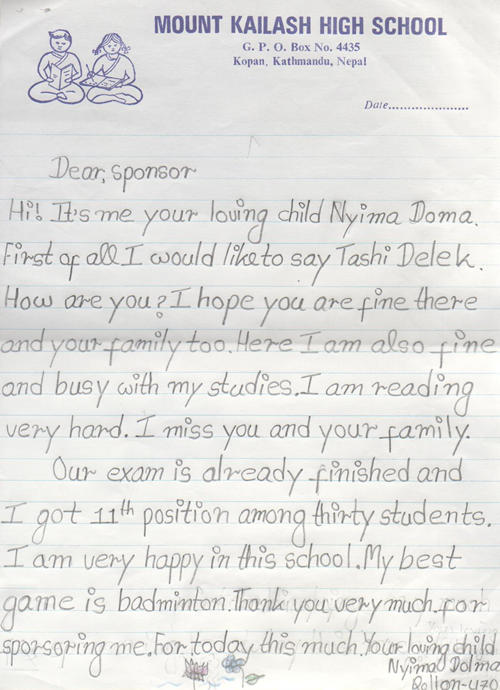 MOUNT KAILASH HIGH SCHOOL
G. P. O. Box No. 4435
Kopan, Kathmandu, Nepal
Date.....................
Dear, sponsor
Hi! It's me your loving child Nyima Doma.
First of all I would like to say Tashi Delek.
How are you? I hope you are fine there
and your family too. Here I am also fine
and busy with my studies. I am reading
very hard. I miss you and your family.
Our exam is already finished and
I got 11th position among thirty students.
I am very happy in this school. My best
game is badminton. Thank you very much for
sporsoring me. For today this much. Your loving child
Nyima Dolma